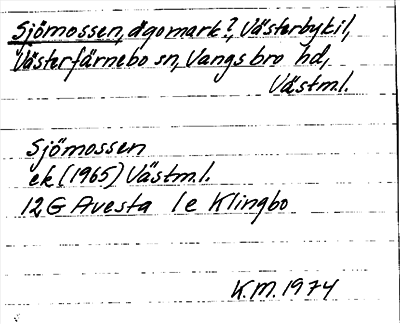 Sjömossen, ägomark?, Västerbykil,
Västerfärnebo sn, Vangsbro hd,
Västm.l.
Sjömossen
ek (1965) Västm.l.
12G Avesta 1e Klingbo
K.M. 1974